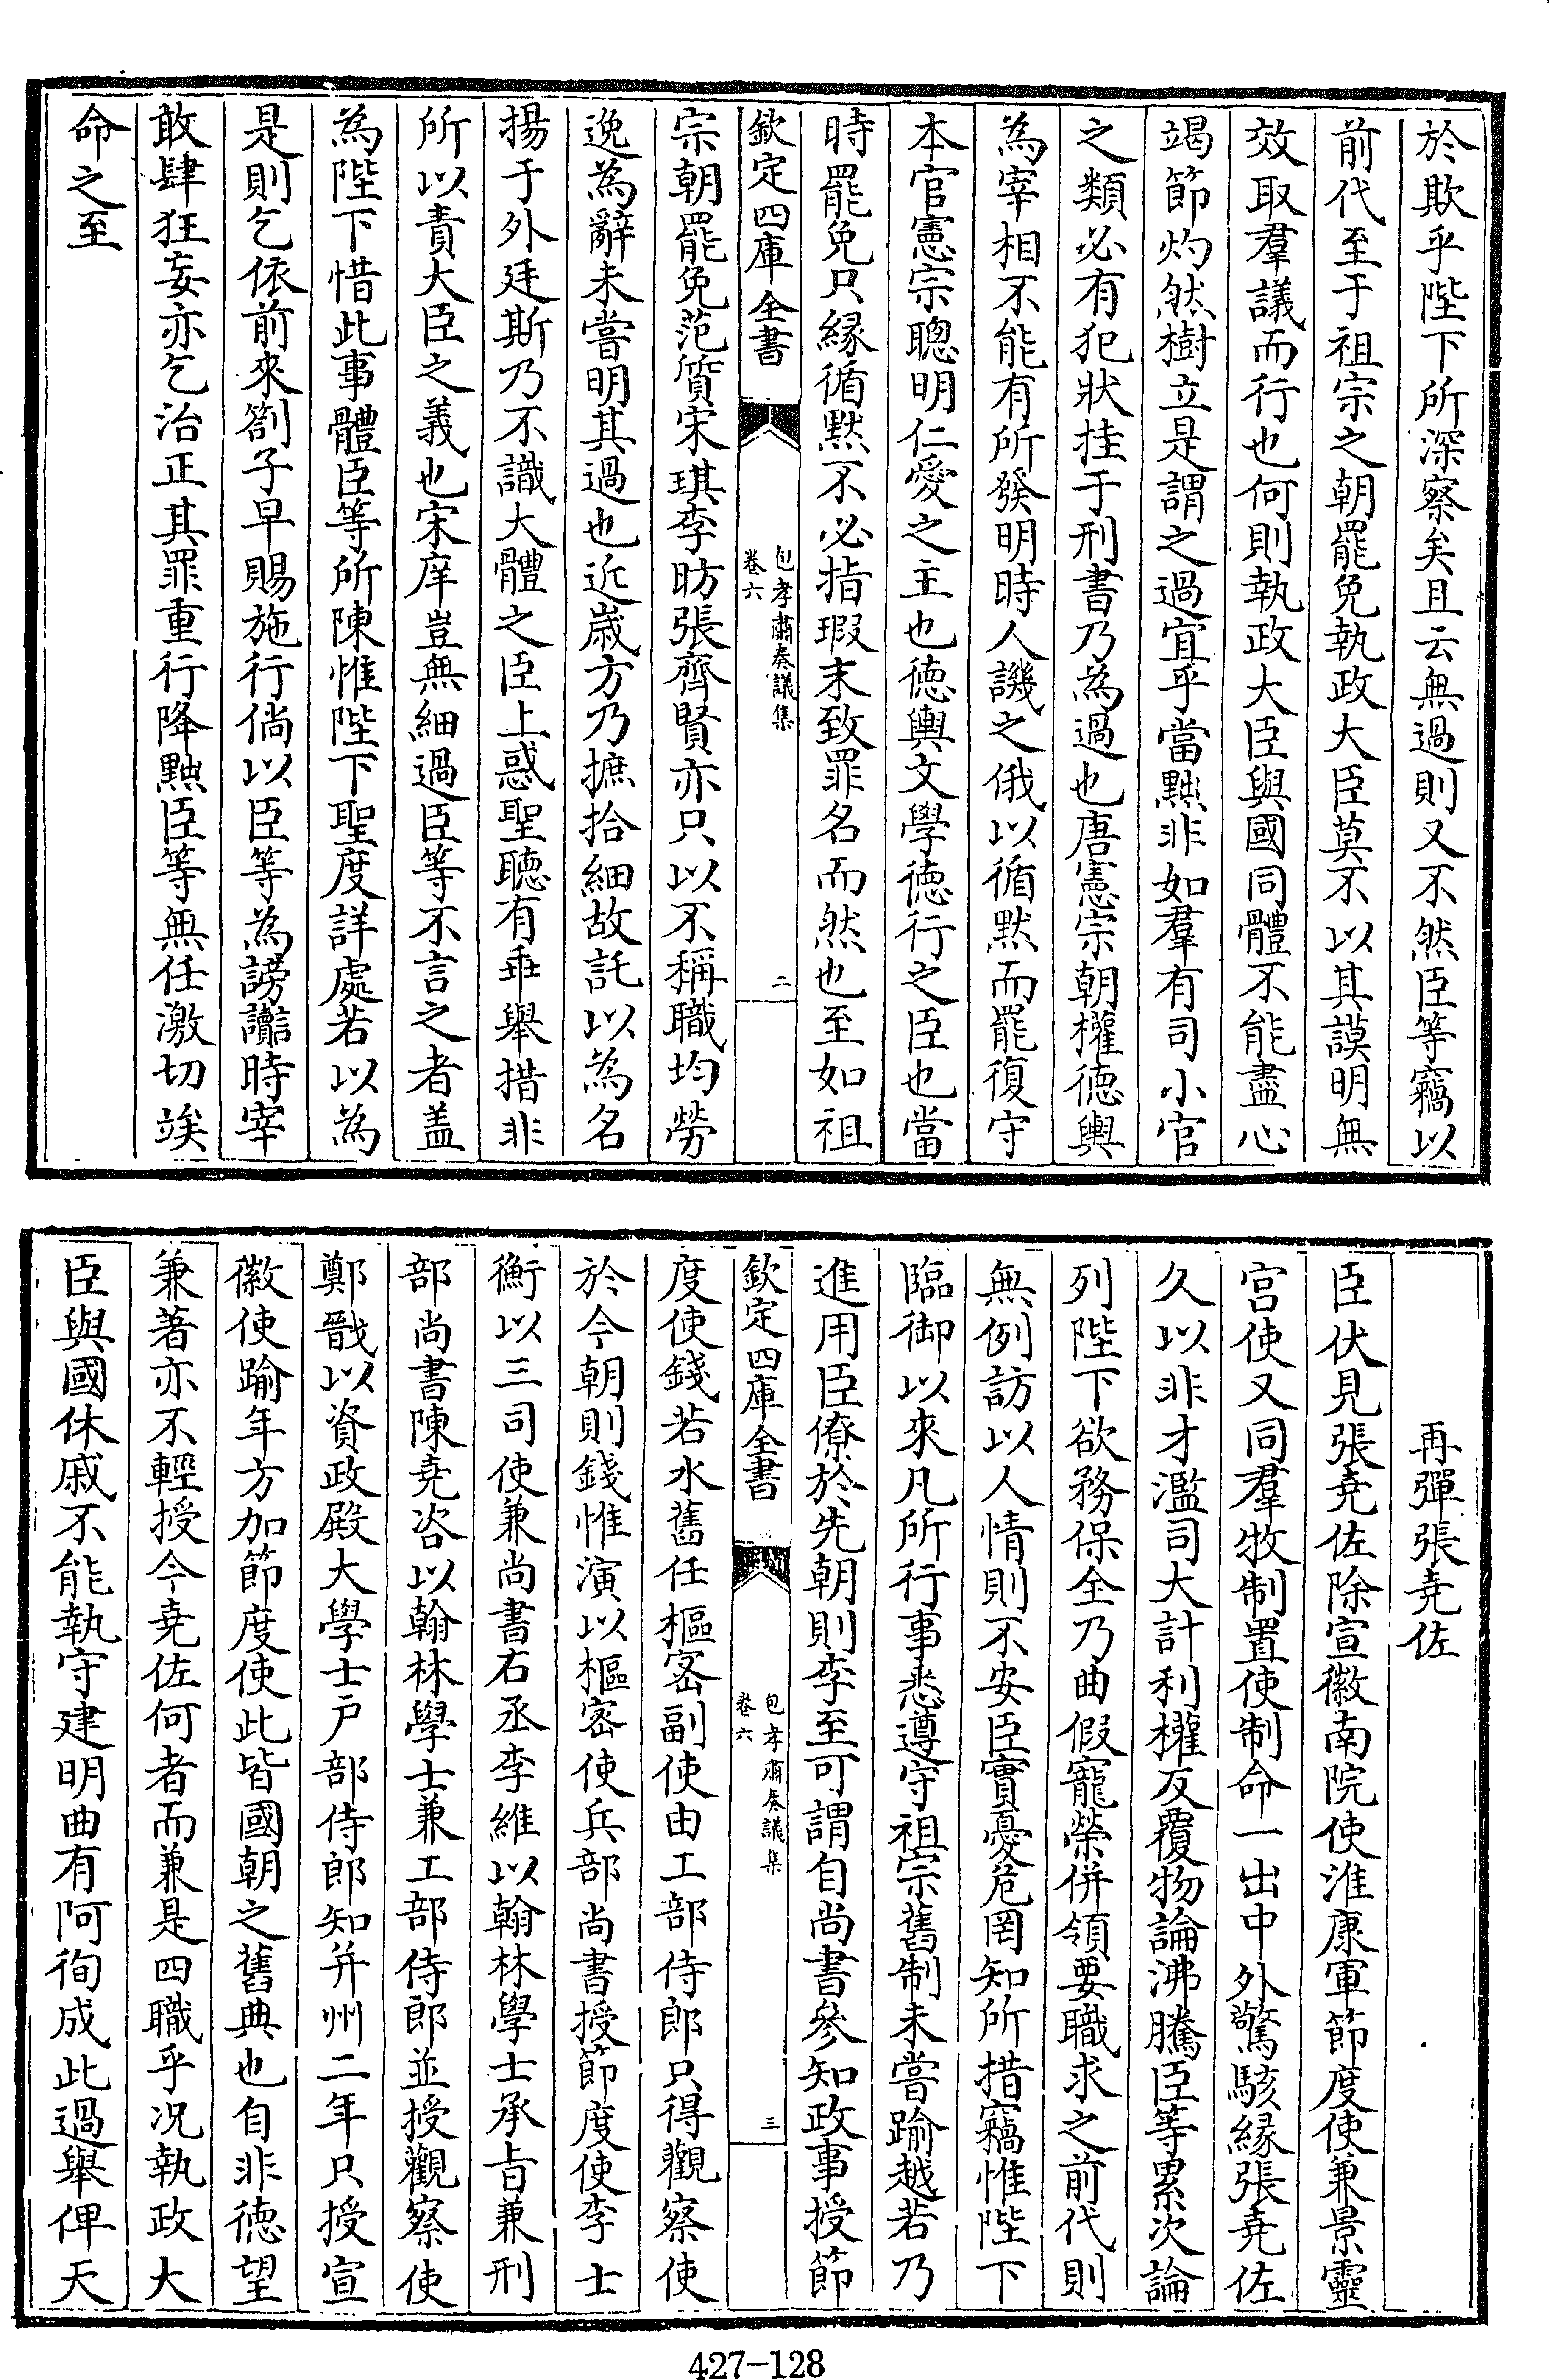 於欺乎陛下所深察矣且云無過則又不然臣等竊以
前代至于祖宗之朝罷免執政大臣莫不以其謨明無
效取羣議而行也何則執政大臣與國同體不能盡心
竭節灼然樹立是謂之過宜乎當黜非如羣有司小官
之類必有犯狀挂于刑書乃為過也唐憲宗朝權德輿
為宰相不能有所發明時人譏之俄以循默而罷復守
本官憲宗聰明仁愛之主也德輿文學德行之臣也當
時罷免只緣循默不必指瑕末致罪名而然也至如祖
欽定四庫全書
包孝肅奏議集
卷六
二
宗朝罷免范質宋琪李昉張齊賢亦只以不稱職均勞
逸為辭未嘗明其過也近歲方乃摭拾細故託以為名
揚于外廷斯乃不識大體之臣上惑聖聽有乖舉措非
所以責大臣之義也宋庠豈無細過臣等不言之者盖
為陛下惜此事體臣等所陳惟陛下聖度詳處若以為
是則乞依前來劄子早賜施行倘以臣等為謗讟時宰
敢肆狂妄亦乞治正其罪重行降黜臣等無任激切竢
命之至
再彈張堯佐
臣伏見張堯佐除宣徽南院使淮康軍節度使兼景靈
宫使又同羣牧制置使制命一出中外驚駭緣張堯佐
久以非才濫司大計利權反覆物論沸騰臣等累次論
列陛下欲務保全乃曲假寵榮併領要職求之前代則
無例訪以人情則不安臣實憂危罔知所措竊惟陛下
臨御以來凡所行事悉遵守祖宗舊制未嘗踰越若乃
進用臣僚於先朝則李至可謂自尚書參知政事授節
欽定四庫全書
包孝肅奏議集
卷六
三
度使錢若水舊任樞密副使由工部侍郎只得觀察使
於今朝則錢惟演以樞密使兵部尚書授節度使李士
衡以三司使兼尚書右丞李維以翰林學士承旨兼刑
部尚書陳堯咨以翰林學士兼工部侍郎並授觀察使
鄭戩以資政殿大學士户部侍郎知并州二年只授宣
徽使踰年方加節度使此皆國朝之舊典也自非德望
兼著亦不輕授今堯佐何者而兼是四職乎况執政大
臣與國休戚不能執守建明曲有阿徇成此過舉俾天
427-128